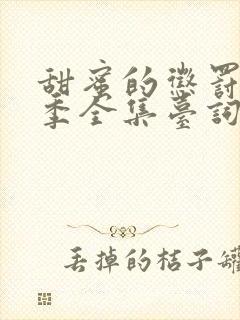 甜蜜的懲罰
季全集臺詞
丢掉的桔子罐